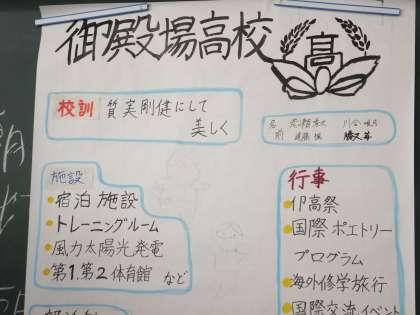 御殿場高校
高
校訓 質実剛健にして
美しく
名前
勝又
施設
・宿泊施設
・トレーニングルーム
・風力太陽光発電
・第1.第2体育館 など
行事
・御高祭
・国際ポエトリー
プログラム
・海外修学旅行
・国際交流イベント